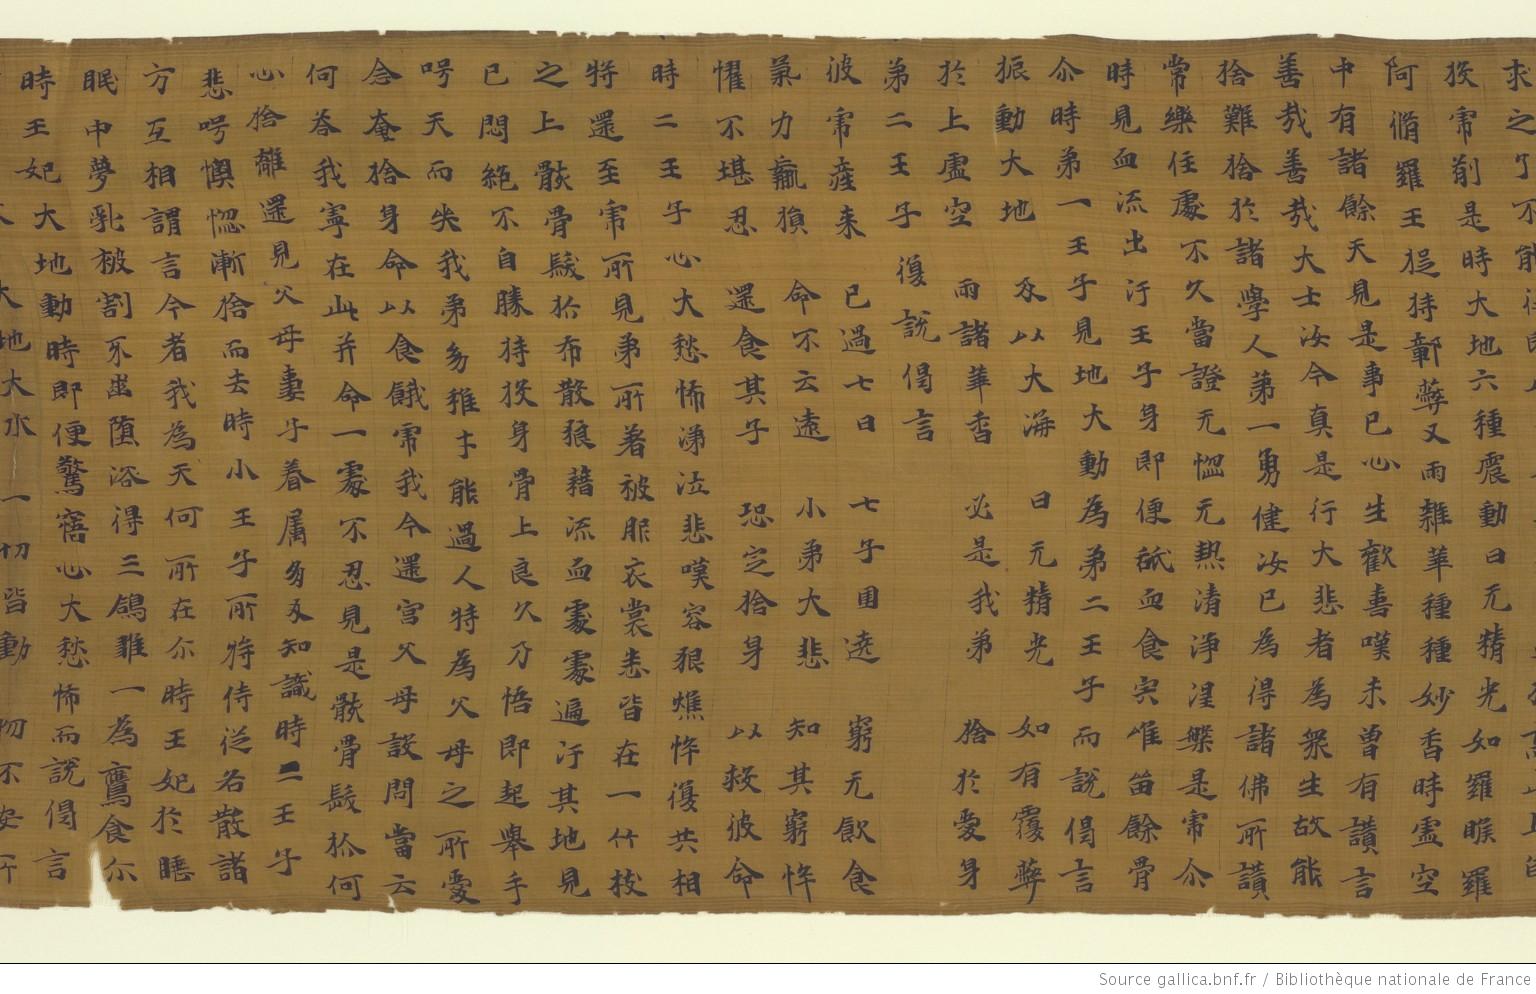 投常前是時大地六種震動日无精光如羅睺羅
阿脩羅王捉持鄣蔽又雨雜華種種妙香時虛空
中有諸餘天見是事已心生歡喜嘆未曾有讚言
善哉善哉大士汝今真是行大悲者為衆生故能
捨難捨於諸學人苐一勇健汝已為得諸佛所讚
常樂住處不久當證无惱无熱清淨涅槃是常尒
時見血流出汙王子身即便舐血食宍唯留餘骨
尒時苐一王子見地大動為苐二王子而說偈言
振動大地 及以大海 日无精光 如有覆蔽
於上虛空 雨諸華香 必是我弟 捨於愛身
苐二王子 復說偈言
彼常產来 已過七日 七子圍遶 窮无飲食
氣力羸損 命不云遠 小弟大悲 知其窮悴
懼不堪忍 還食其子 恐定捨身 以救彼命
時二王子心大愁怖涕泣悲嘆容貌燋悴復共相
將還至常所見弟所著被服衣裳悉皆在一竹枝
之上骸骨髮爪布散狼藉流血處處遍汙其地見
已悶絶不自勝持投身骨上良久乃悟即起舉手
号天而哭我弟幼稚才能過人特為父母之所愛
念奄捨身命以食餓常我今還宮父母設問當云
何荅我寧在此并命一處不忍見是骸骨髮爪何
心捨離還見父母妻子眷属朋友知識時二王子
悲号懊惱漸捨而去時小王子所將侍從各散諸
方互相謂言今者我為天何所在尒時王妃於睡
眠中夢乳被割牙齒墮落得三鴿鶵一為鷹食尒
時王妃大地動時即便驚寤心大愁怖而說偈言
大地大水 一切皆動 物不安所